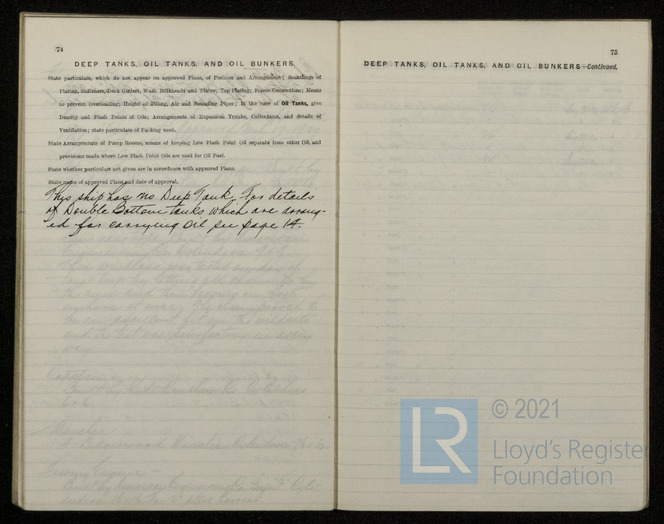 74
DEEP TANKS, OIL TANKS, AND OIL BUNKERS.
State particulars, which do not appear on approved Plans, of Position and Arrangement; Scantlings of
Plating, Stiffeners, Deck Girders, Wash Bulkheads and Plates; Top Plating; Frame Connections; Means
to prevent Overloading; Height of Filling, Air and Sounding Pipes; In the case of Oil Tanks, give
Density and Flash Points of Oils; Arrangements of Expansion Tanks, Cofferdams, and details of
Ventilation; state particulars of Packing used.
State Arrangements of Pump Rooms; means of keeping Low Flash Point Oil separate from other Oil, and
provisions made where Low Flash Point Oils are used for Oil Fuel.
State whether particulars not given are in accordance with approved Plans.
State name of approved Plans and date of approval.
This ship has no Deep Tank. For details
of Double Bottom tanks which are arrang-
ed for carrying oil see page 14.
75
DEEP TANKS, OIL TANKS, AND OIL BUNKERS—Continued.
LR
© 2021
Lloyd's Register
Foundation